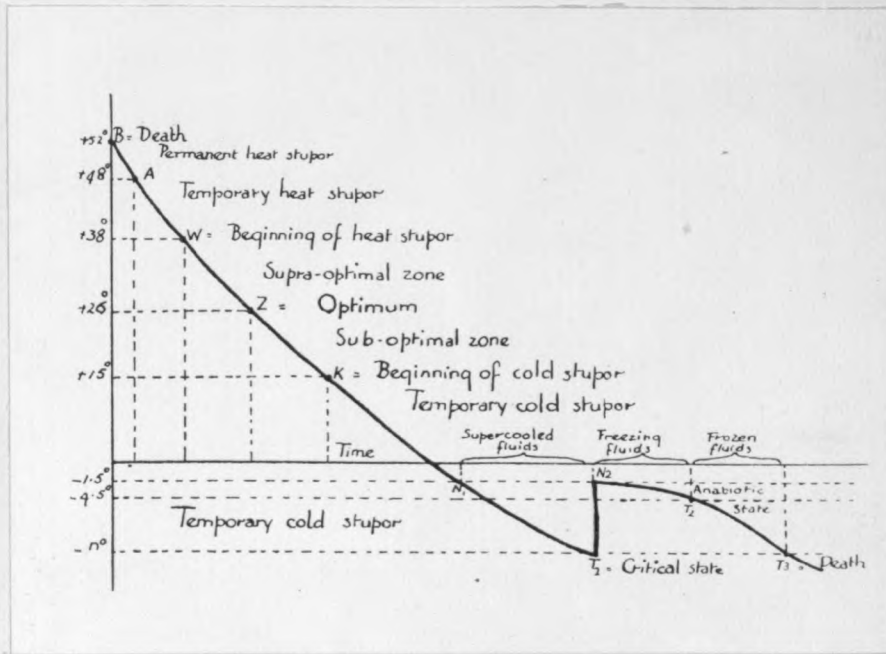 +52° B = Death
Permanent heat stupor
+48° A
Temporary heat stupor
+38° W = Beginning of heat stupor
Supra-optimal zone
+26° Z = Optimum
Sub-optimal zone
+15° K = Beginning of cold stupor
Temporary cold stupor
Supercooled fluids
Freezing fluids
Frozen fluids
Time
-1.5° N₁ N₂
Anabiotic State
-4.5° T₂
Temporary cold stupor
-n° T₁ = Critical state T₃ = Death